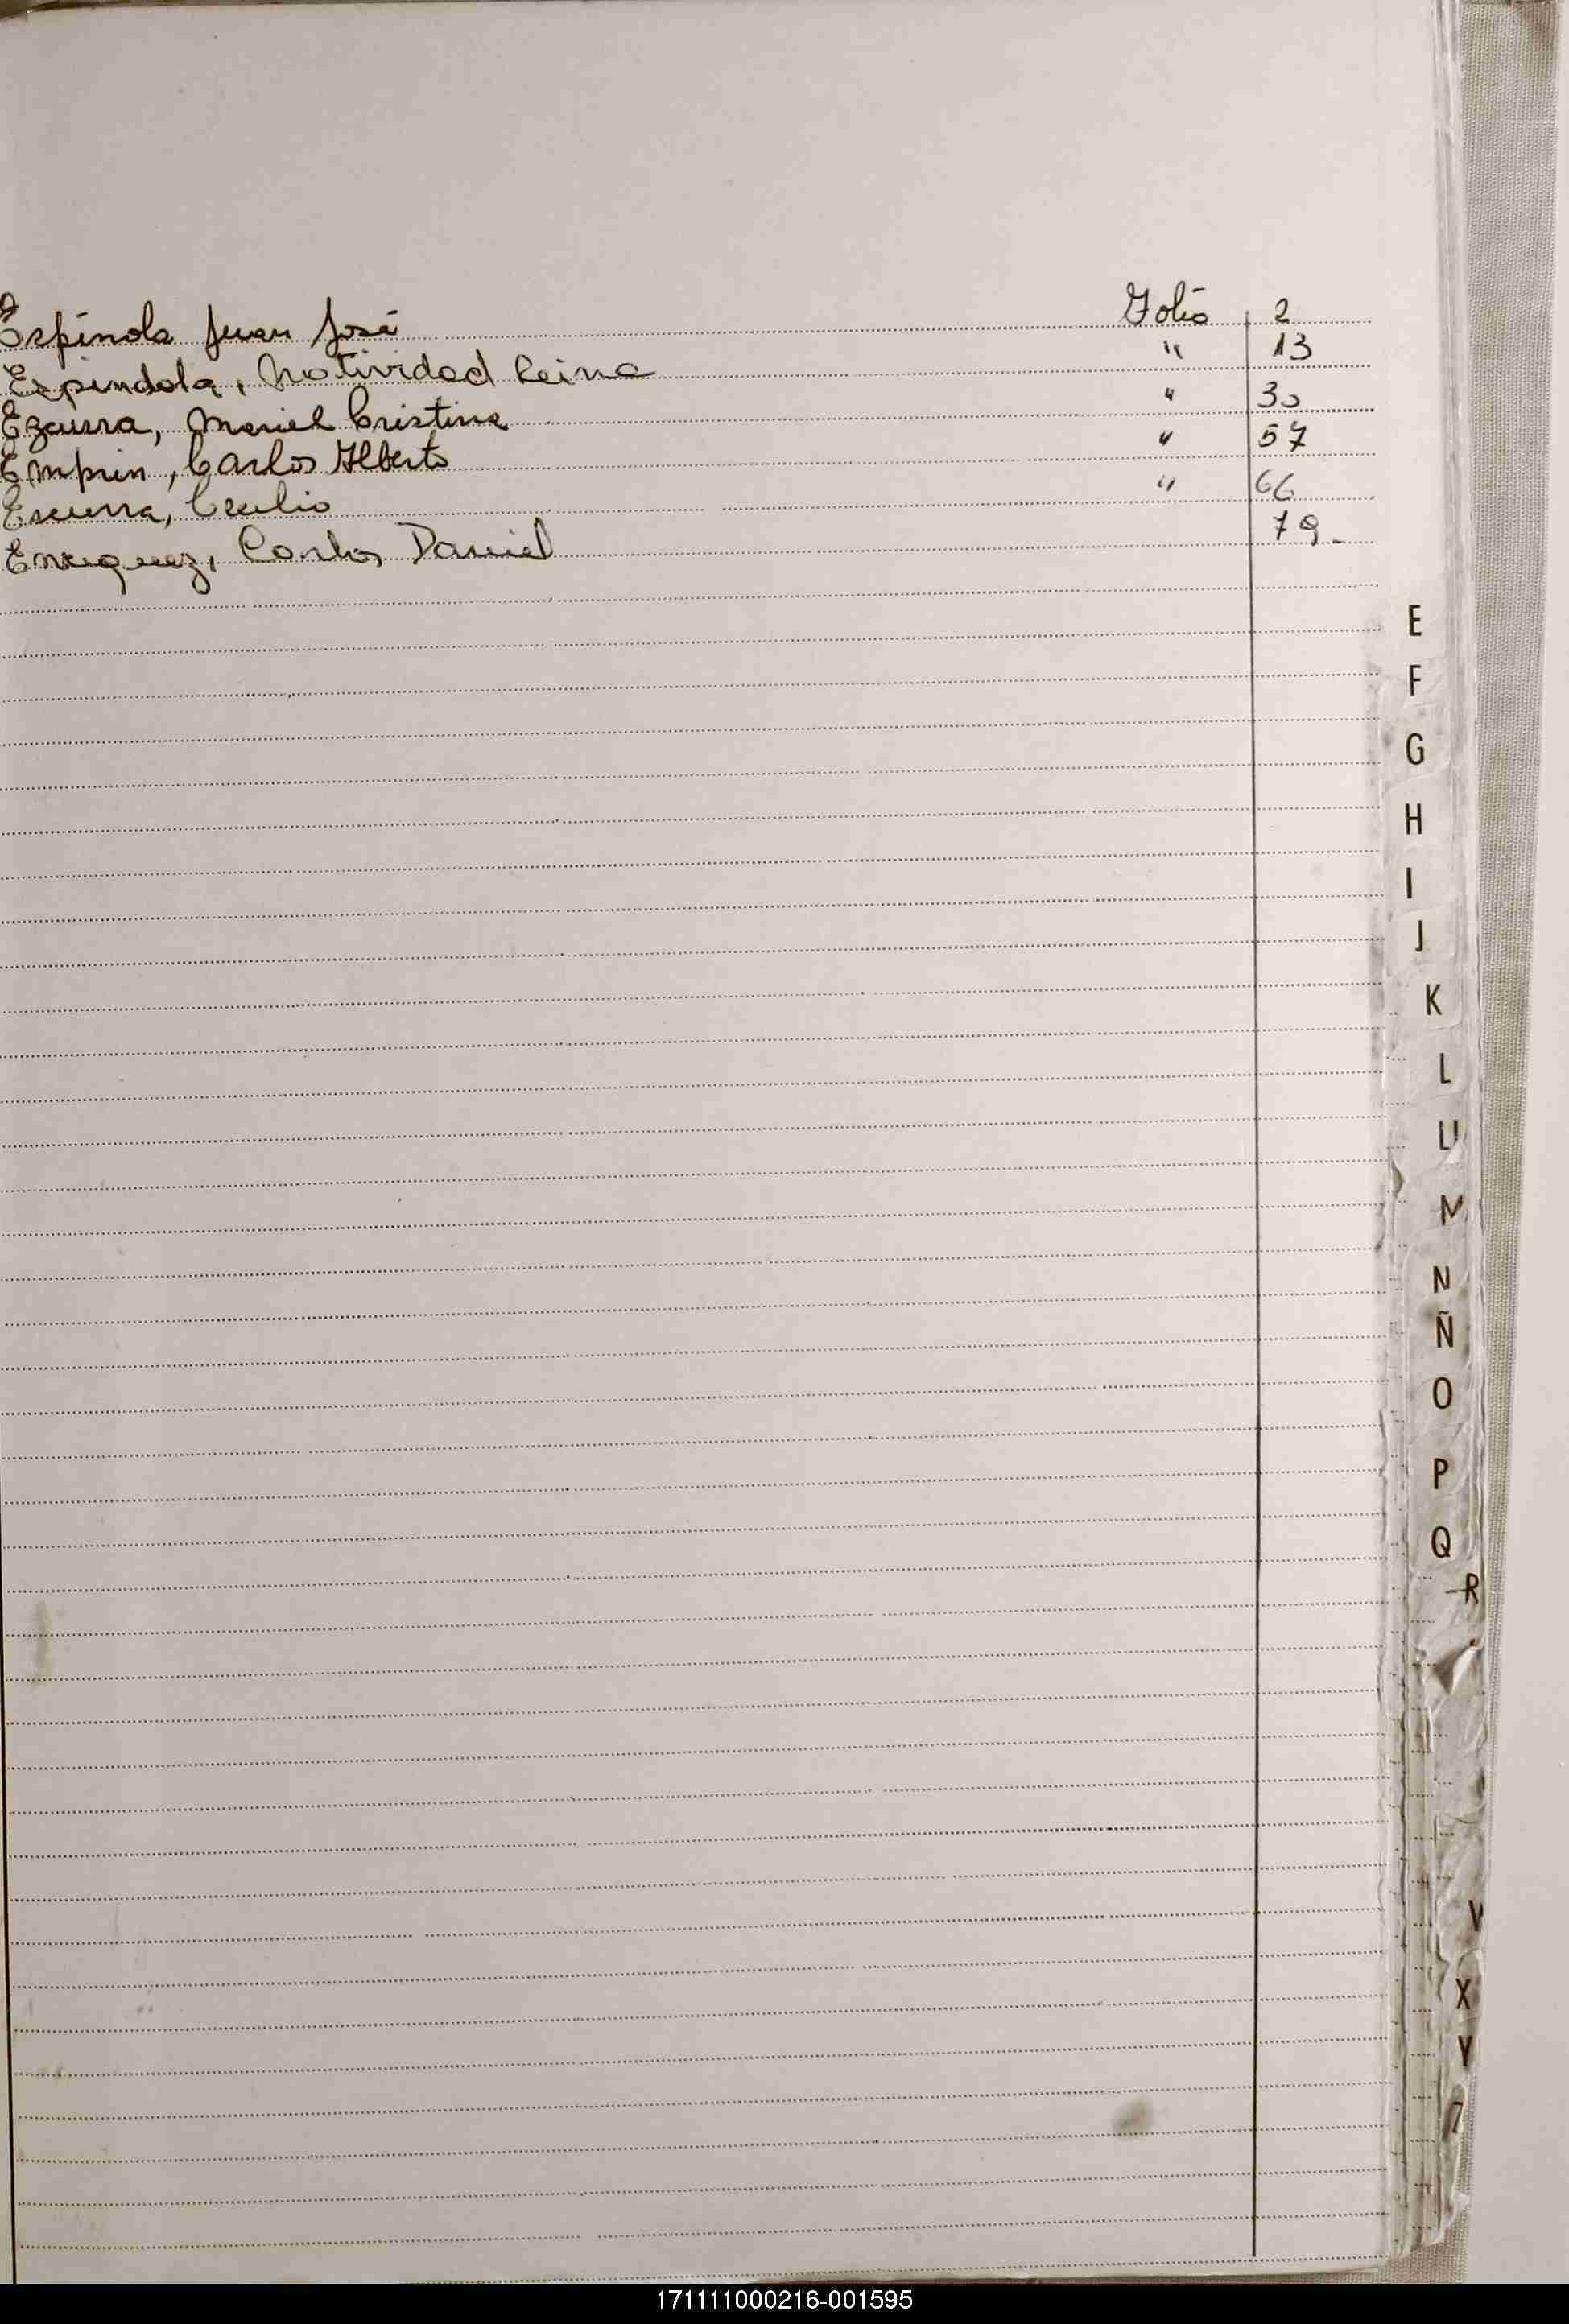 Espínola Juan José Folio 2
Espindola, Natividad Reina " 13
Ezcurra, Mariel Cristina " 30
Emprin, Carlos Alberto " 57
Escurra, Cecilio " 66
Enriquez, Carlos Daniel 79-
E
F
G
H
I
J
K
L
LL
M
N
Ñ
O
P
Q
R
V
X
Y
Z
171111000216-001595